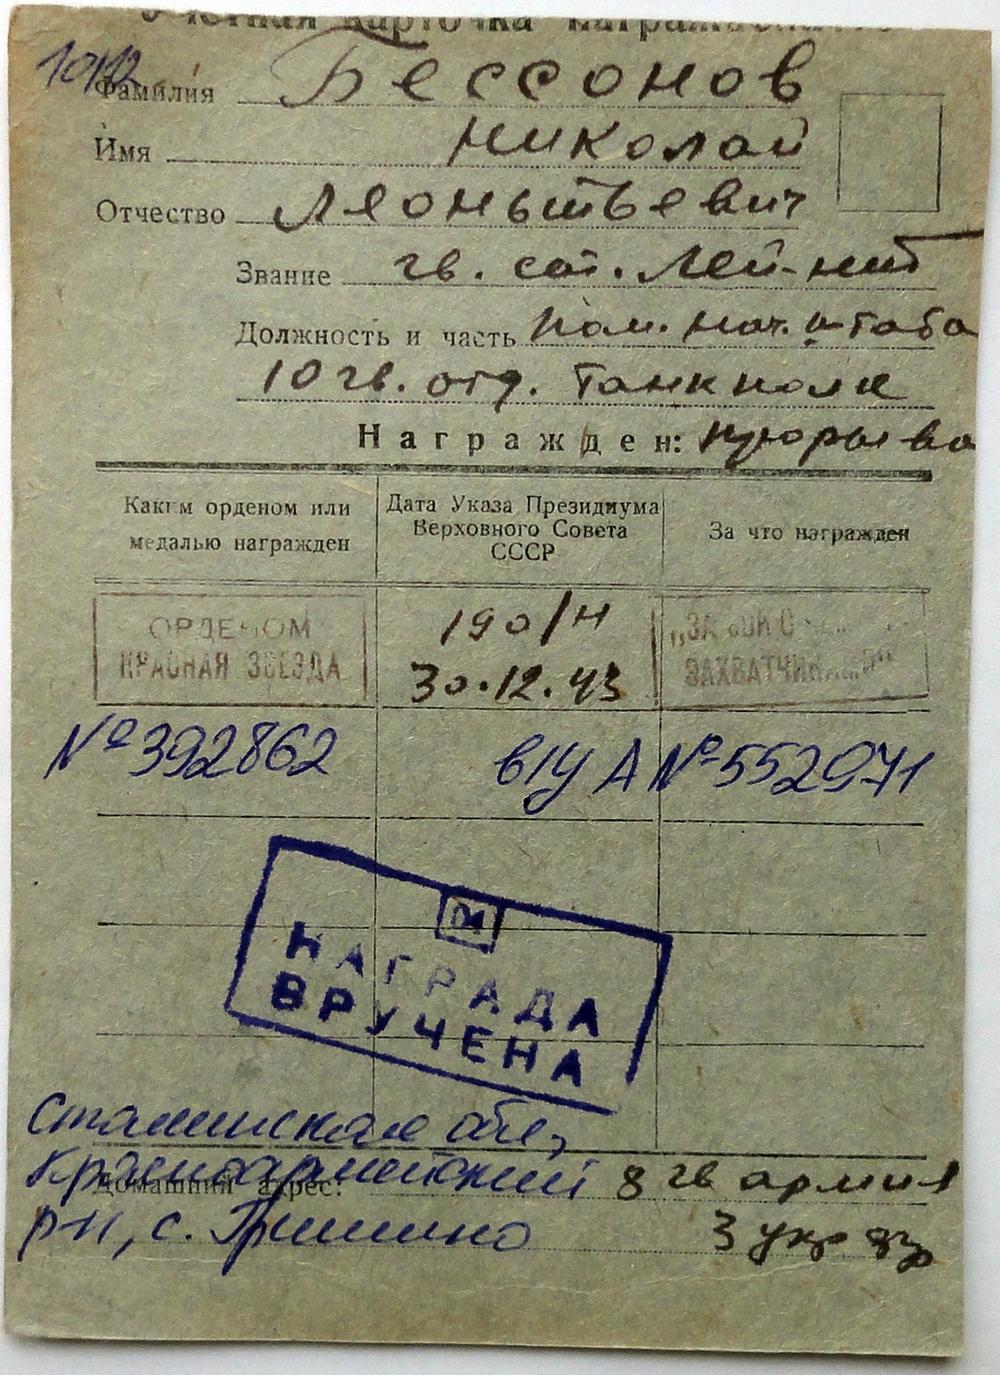 Учетная карточка награжденного
10/12
Фамилия Бессонов
Имя Николай
Отчество Леонтьевич
Звание гв. ст. Лей-нит
Должность и часть Пом. Нач. штаба
10 гв. отд. Танк полк
Награжден: прорыва
Каким орденом или медалью награжден
Дата Указа Президиума Верховного Совета СССР
За что награжден
ОРДЕНОМ КРАСНАЯ ЗВЕЗДА
190/н
30.12.43
„ЗА БОИ С
ЗАХВАТЧИКАМИ"
№392862 в/у А №552971
04
НАГРАДА
ВРУЧЕНА
Сталинская обл,
Красноармейский 8 гв армия
Домашний адрес:
р-н, с. Гришино 3 укр фр